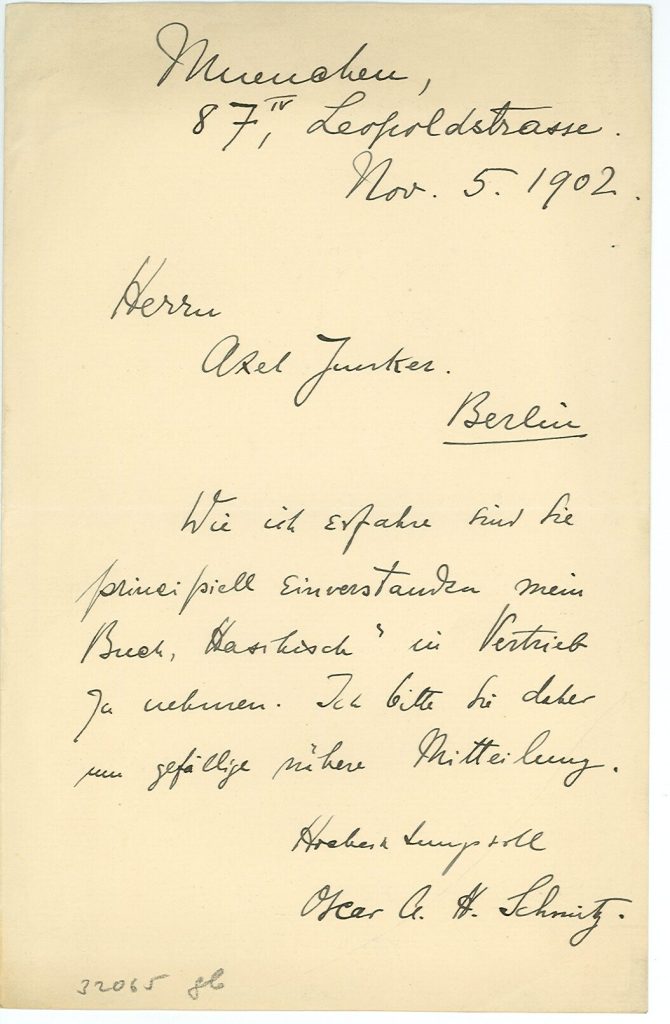 Muenchen,
87,IV Leopoldstrasse.
Nov. 5. 1902.
Herrn
Axel Juncker.
Berlin
Wie ich erfahre sind Sie
principiell einverstanden mein
Buch „Haschisch“ in Vertrieb
zu nehmen. Ich bitte Sie daher
um gefällige nähere Mitteilung.
Hochachtungsvoll
Oscar A. H. Schmitz.
32065